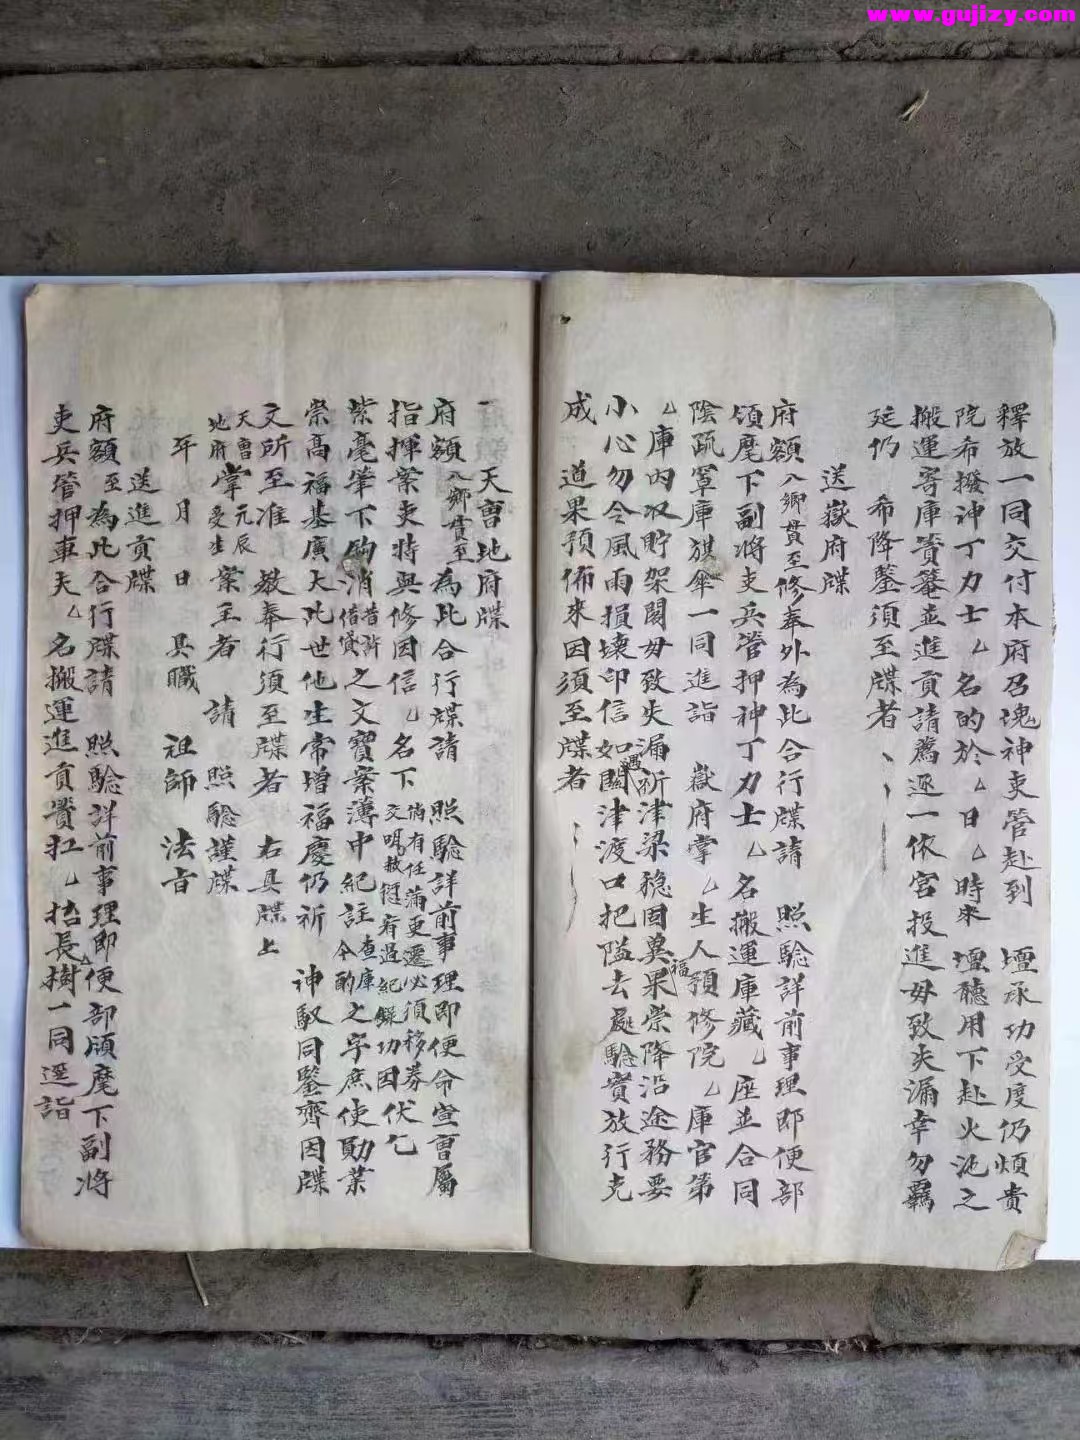 www.gujizy.com
釋放一同交付本府召魂神吏管赴到 壇承功受度仍煩貴
院希撥神丁力士厶名的於厶日厶時來 壇聽用下赴火池之
搬運寄庫賫菴並進貢請薦逐一依宮投進毋致失漏幸勿羈
延仍 希降鑒須至牒者
送嶽府牒
府額入鄉貫至修奉外為此合行牒請 照驗詳前事理即便部
領麾下副將支兵管押神丁力士厶名搬運庫藏厶座並合同
陰疏罩庫旗傘一同進詣 嶽府掌厶生人預修院厶庫官第
厶庫內収貯架閣毋致失漏祈津梁穩固奠果福崇降沿途務要
小心勿令風雨損壞印信如遇關津渡口把隘去處驗實放行克
成 道果預佈來因須至牒者
一 天曹地府牒
府額入鄉貫至為此合行牒請 照驗詳前事理即便命宣曹屬
指揮案吏特與修因信厶名下倘有任蒲更遷必須移券交明赦愆宥過紀錄功因伏乞
紫毫筆下鈎消昔許借貸之文寶案薄中紀註查庫今酌之字庶使勛業
崇高福基廣大此世他生常增福慶仍祈 神馭同鑒齊因牒
文所至准 教奉行須至牒者 右具牒上
天曹地府掌元辰受生案主者 請 照驗謹牒
年 月 日 具職 祖師 法旨
送進貢牒
府額至為此合行牒請 照驗詳前事理即便部領麾下副將
吏兵管押車夫厶名搬運進貢賫扛厶抬長厶樹一同逕詣